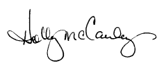 Holly McCauley